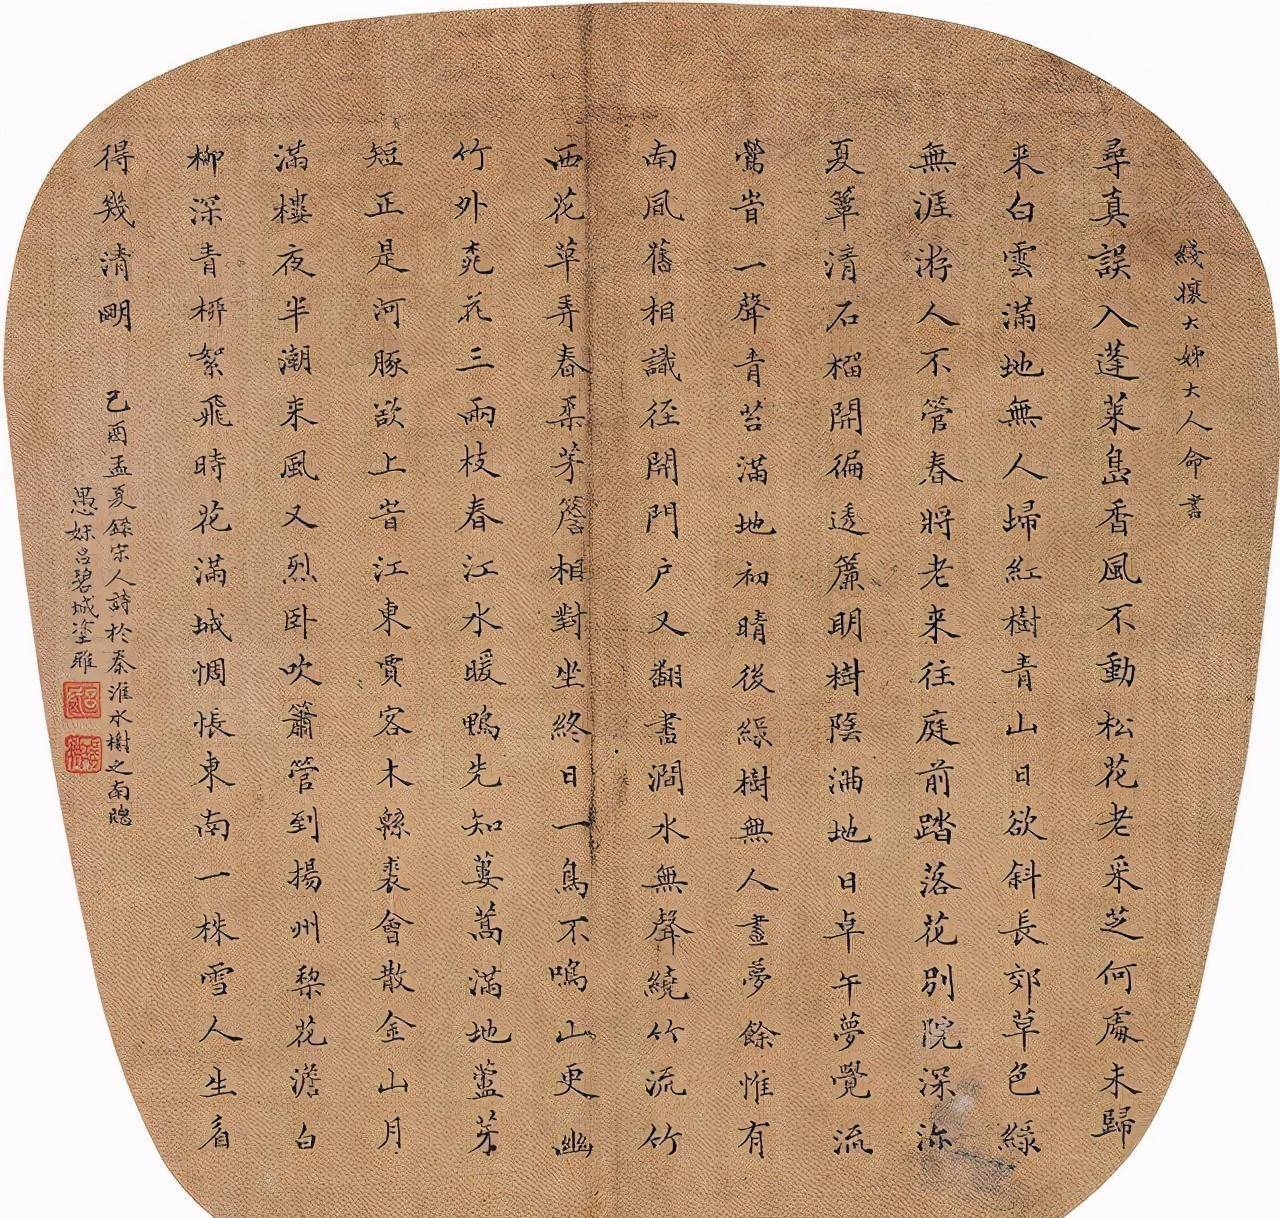 綫攘大姊大人命書
尋真誤入蓬萊島香風不動松花老采芝何處未歸
来白雲滿地無人埽紅樹青山日欲斜長郊草色綠
無涯游人不管春將老来往庭前踏落花別院深深
夏簟清石榴開徧透簾明樹陰滿地日卓午夢覺流
鶯旹一聲青苔滿地初晴後綠樹無人晝夢餘惟有
南風舊相識徑開門戶又翻書澗水無聲繞竹流竹
西花草弄春柔茅簷相對坐終日一鳥不鳴山更幽
竹外桃花三兩枝春江水暖鴨先知蔞蒿滿地蘆芽
短正是河豚欲上旹江東賈客木緜裘會散金山月
滿樓夜半潮来風又烈卧吹簫管到揚州棃花澹白
柳深青栁絮飛時花滿城惆悵東南一株雪人生看
得幾清朙
己酉孟夏錄宋人詩於秦淮水榭之南牎
愚妹呂碧城塗雅